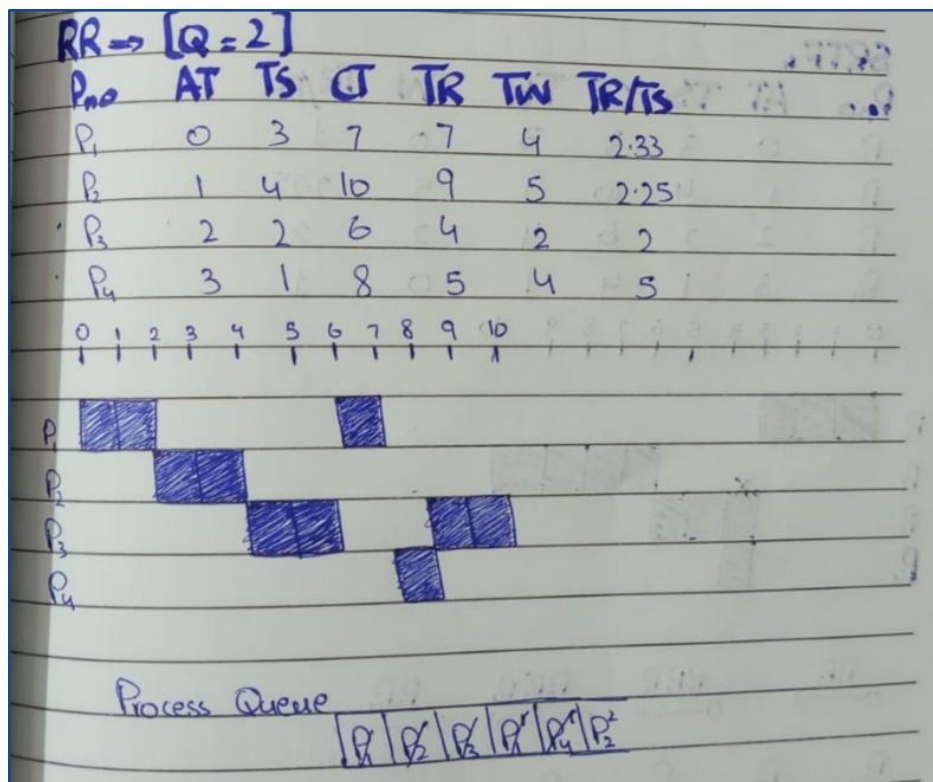 RR → [Q = 2]
Pno AT TS CT TR TW TR/TS
P1 0 3 7 7 4 2.33
P2 1 4 10 9 5 2.25
P3 2 2 6 4 2 2
P4 3 1 8 5 4 5
0 1 2 3 4 5 6 7 8 9 10
P1
P2
P3
P4
Process Queue
P1 P2 P3 P1 P4 P2